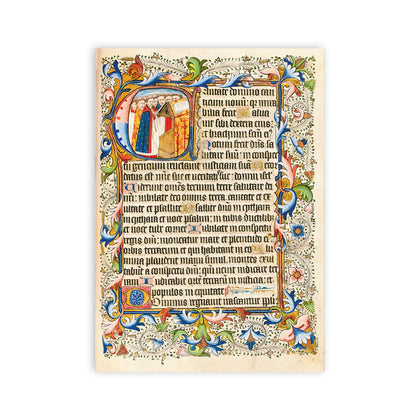 Cantate domino can
ticum nouū: quia mira
bilia fecit Salua
uit sibi dextera eius
brachium
Notum fecit dn̄s sa
lutare suū: in conspectu
gencium reuelauit iusticiam suā Recor
datus est mīe sue et sue: domui isrl
Viderunt om̄s termini terre salutare dei
nr̄i: iubilate deo omnis terra, cantate et ex
ultate et psallite Psallite dn̄o in cythara
in cythara et uoce psalmi: in tubis ductilib;
et uoce tube cornee Iubilate in conspectu
regis dn̄i: moueatur mare et plenitudo
orbis terrarum et qui habitant in eo Flu
mina plaudent manu simul, montes exul
tabūt a conspectu dn̄i: qm̄ uenit iudicare ter
ram Iudicabit orbē terrarū in iusticia: et
populos in equitate
Dominus regnauit irascantur